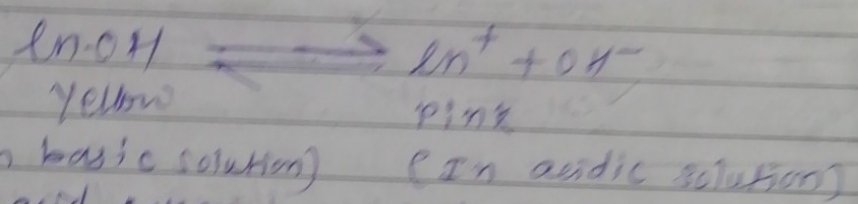 In.OH ⇌ In⁺ + OH⁻
Yellow Pink
basic solution) (In acidic solution)
acid